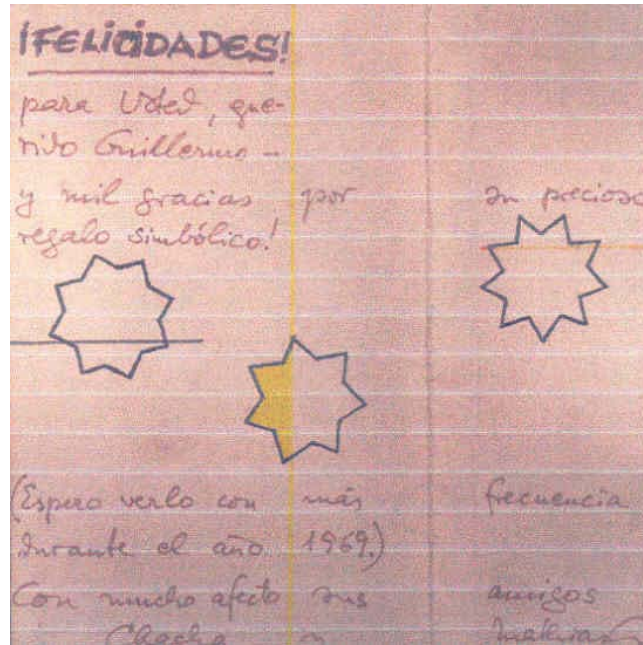 ¡FELICIDADES!
para Usted, que-
rido Guillermo –
y mil gracias por su precioso
regalo simbólico!
(Espero verlo con más frecuencia
durante el año 1969.)
Con mucho afecto sus amigos
Chacha y Mathias